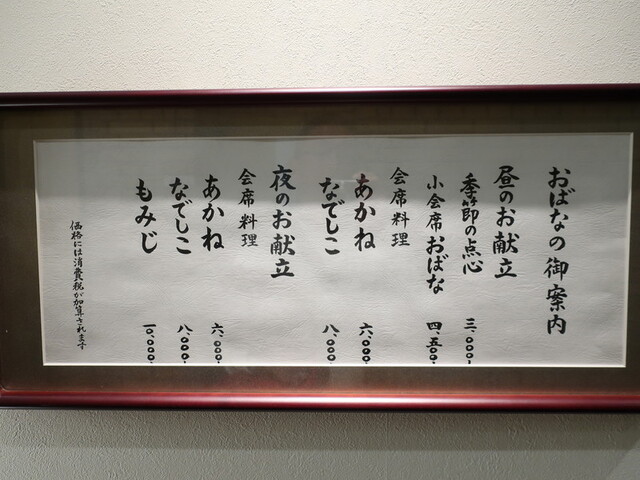 おばなの御案内
昼のお献立
季節の点心 三、〇〇〇、
小会席おばな 四、五〇〇、
会席料理
あかね 六、〇〇〇、
なでしこ 八、〇〇〇、
夜のお献立
会席料理
あかね 六、〇〇〇、
なでしこ 八、〇〇〇、
もみじ 一〇、〇〇〇、
価格には消費税が加算されます